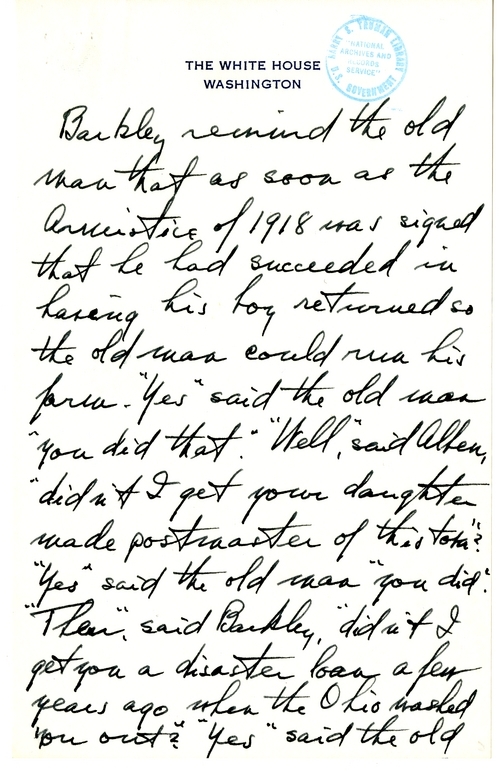 HARRY S. TRUMAN LIBRARY
"NATIONAL
ARCHIVES AND
RECORDS
SERVICE"
U.S. GOVERNMENT
THE WHITE HOUSE
WASHINGTON
Barkley remind the old
man that as soon as the
Armistice of 1918 was signed
that he had succeeded in
having his boy returned so
the old man could run his
farm. "Yes" said the old man
"you did that." "Well," said Alben,
"didn't I get your daughter
made postmaster of this town"?
"Yes" said the old man "you did".
"Then", said Barkley, "didn't I
get you a disaster loan a few
years ago when the Ohio washed
you out?" "Yes" said the old